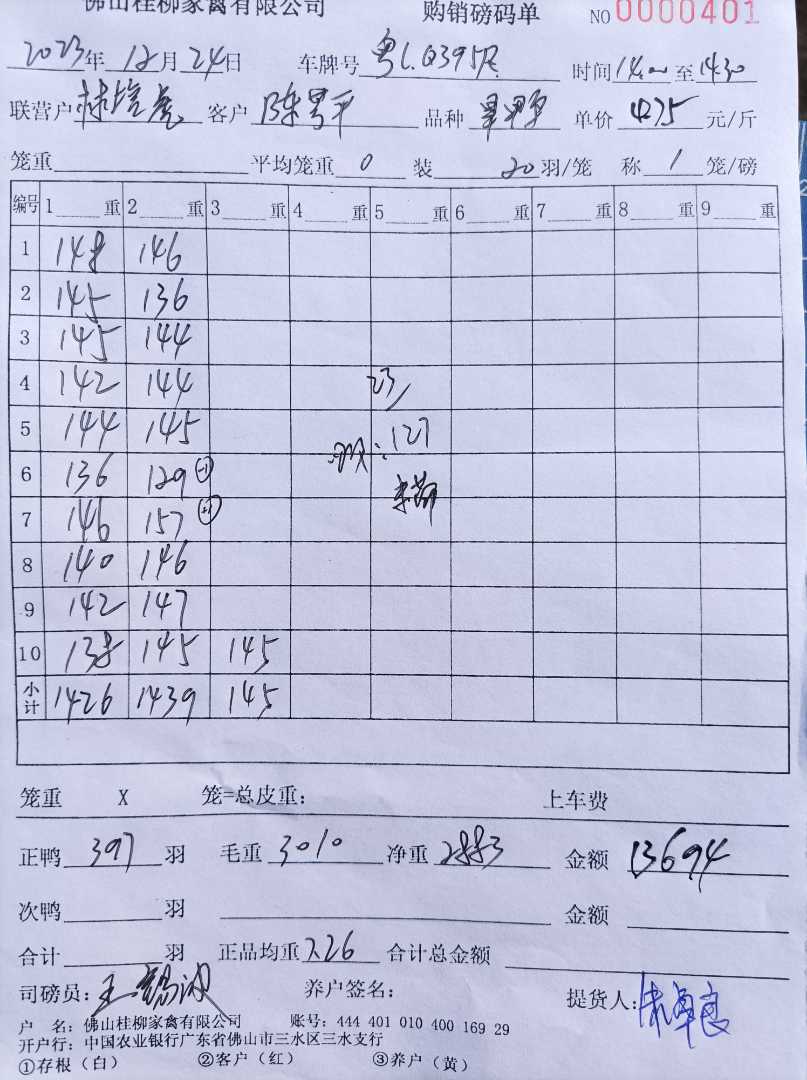 佛山桂柳家禽有限公司 购销磅码单 NO 0000401
2023年 12月 24日 车牌号 粤L.Q395R 时间 14:00 至 14:30
联营户 客户 陈 平 品种 单价 4.75 元/斤
笼重 平均笼重 0 装 20 羽/笼 称 1 笼/磅
编号 1 重 2 重 3 重 4 重 5 重 6 重 7 重 8 重 9 重
1 148 146
2 145 136
3 145 144
4 142 144 23/
5 144 145 127
6 136 129 (-1)
7 146 157 (+1)
8 140 146
9 142 147
10 138 145 145
小计 1426 1439 145
笼重 X 笼=总皮重： 上车费
正鸭 397 羽 毛重 3010 净重 2883 金额 13694
次鸭 羽 金额
合计 羽 正品均重 7.26 合计总金额
司磅员： 王 波 养户签名： 提货人：
户 名：佛山桂柳家禽有限公司 账号：444 401 010 400 169 29
开户行：中国农业银行广东省佛山市三水区三水支行
①存根（白） ②客户（红） ③养户（黄）